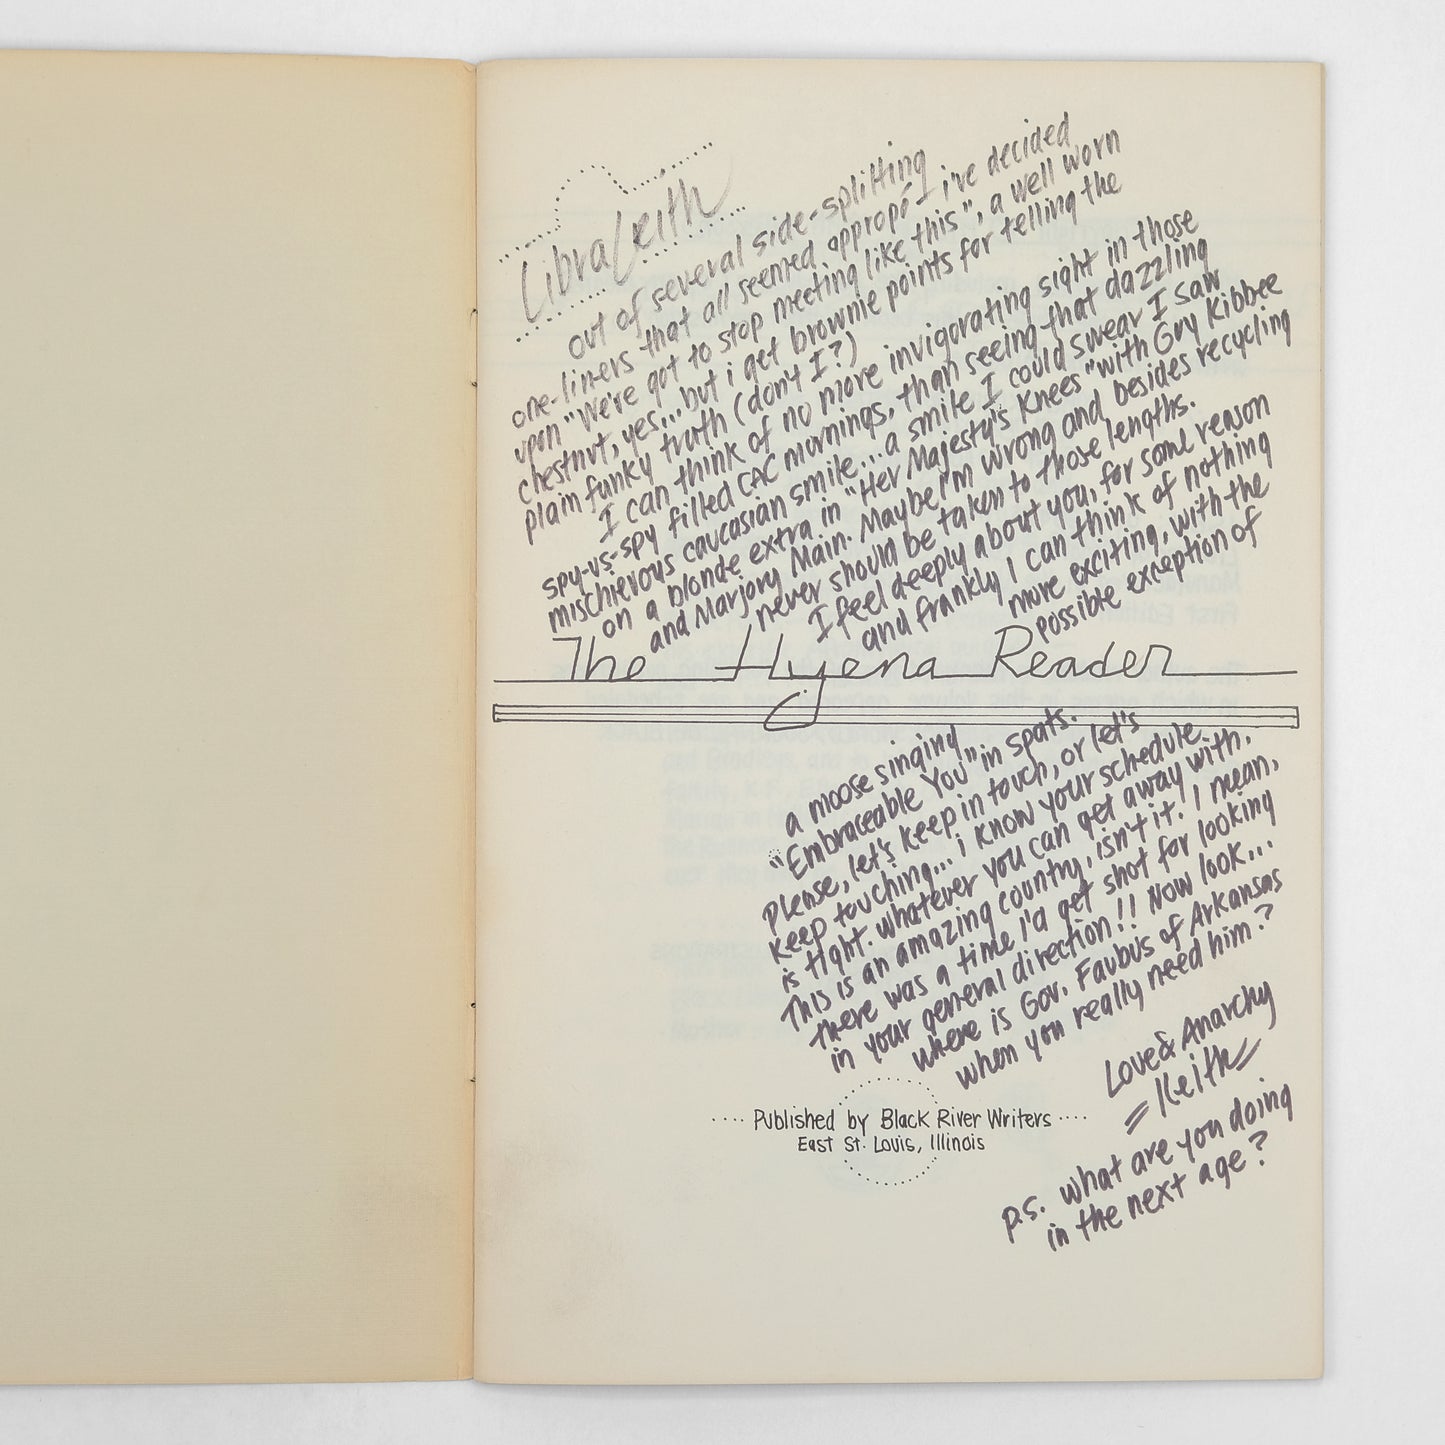 LibraKeith
out of several side-splitting
one-liners that all seemed appropó I i've decided
upon "We've got to stop meeting like this", a well worn
chestnut, yes...but i get brownie points for telling the
plain funky truth (don't I?)
I can think of no more invigorating sight in those
spy-vs-spy filled CAC mornings, than seeing that dazzling
mischievous caucasian smile...a smile I could swear I saw
on a blonde extra in "Her Majesty's Knees" with Guy Kibbee
and Marjory Main. Maybe I'm wrong and besides recycling
never should be taken to those lengths.
I feel deeply about you, for some reason
and frankly I can think of nothing
more exciting, with the
possible exception of
The Hyena Reader
a moose singing
"Embraceable You" in spats.
Please, let's keep in touch, or let's
keep touching... i know your schedule
is tight. whatever you can get away with.
This is an amazing country, isn't it. I mean,
there was a time I'd get shot for looking
in your general direction!! Now look...
where is Gov. Faubus of Arkansas
when you really need him?
Love & Anarchy
Keith
Published by Black River Writers
East St. Louis, Illinois
p.s. what are you doing
in the next age?